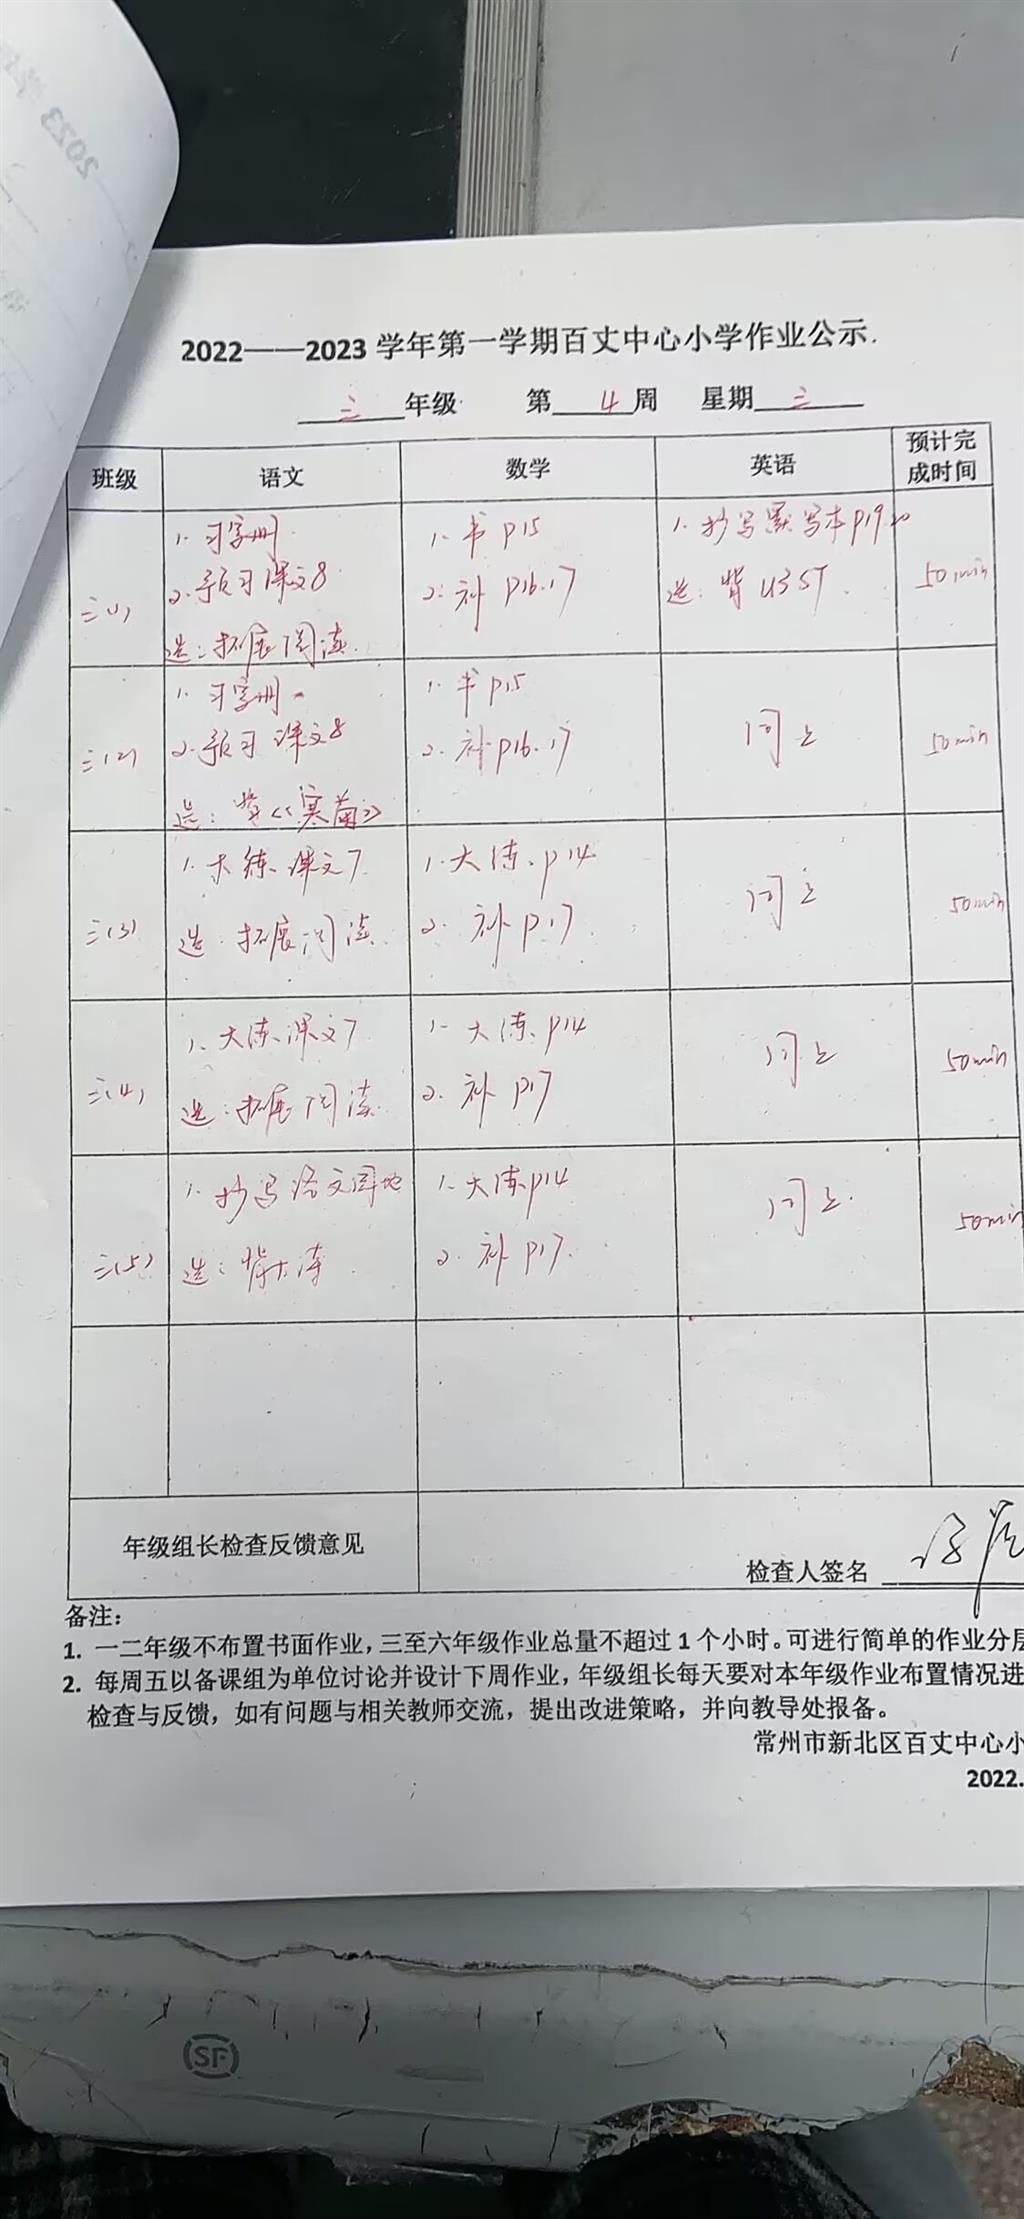 2023
2022——2023 学年第一学期百丈中心小学作业公示.
三 年级 第 4 周 星期 三
班级 语文 数学 英语 预计完成时间
三(1)
1. 习字册.
2. 预习课文8
选: 拓展阅读.
1. 书 P15
2. 补 P16.17
1. 抄写默写本P19.20
选: 背 U3 ST.
50min
三(2)
1. 习字册.
2. 预习课文8
选: 背《寒菊》
1. 书 P15
2. 补P16.17
同上
50min
三(3)
1. 大练.课文7
选: 拓展阅读.
1. 大练. P14
2. 补 P17
同上
50min
三(4)
1. 大练.课文7
选: 拓展阅读.
1. 大练. P14
2. 补 P17
同上
50min
三(5)
1. 抄写语文园地
选: 背大练
1. 大练P14
2. 补 P17.
同上.
50min
年级组长检查反馈意见
检查人签名
备注:
1. 一二年级不布置书面作业，三至六年级作业总量不超过 1 个小时。可进行简单的作业分层
2. 每周五以备课组为单位讨论并设计下周作业，年级组长每天要对本年级作业布置情况进
检查与反馈，如有问题与相关教师交流，提出改进策略，并向教导处报备。
常州市新北区百丈中心小
2022.
SF